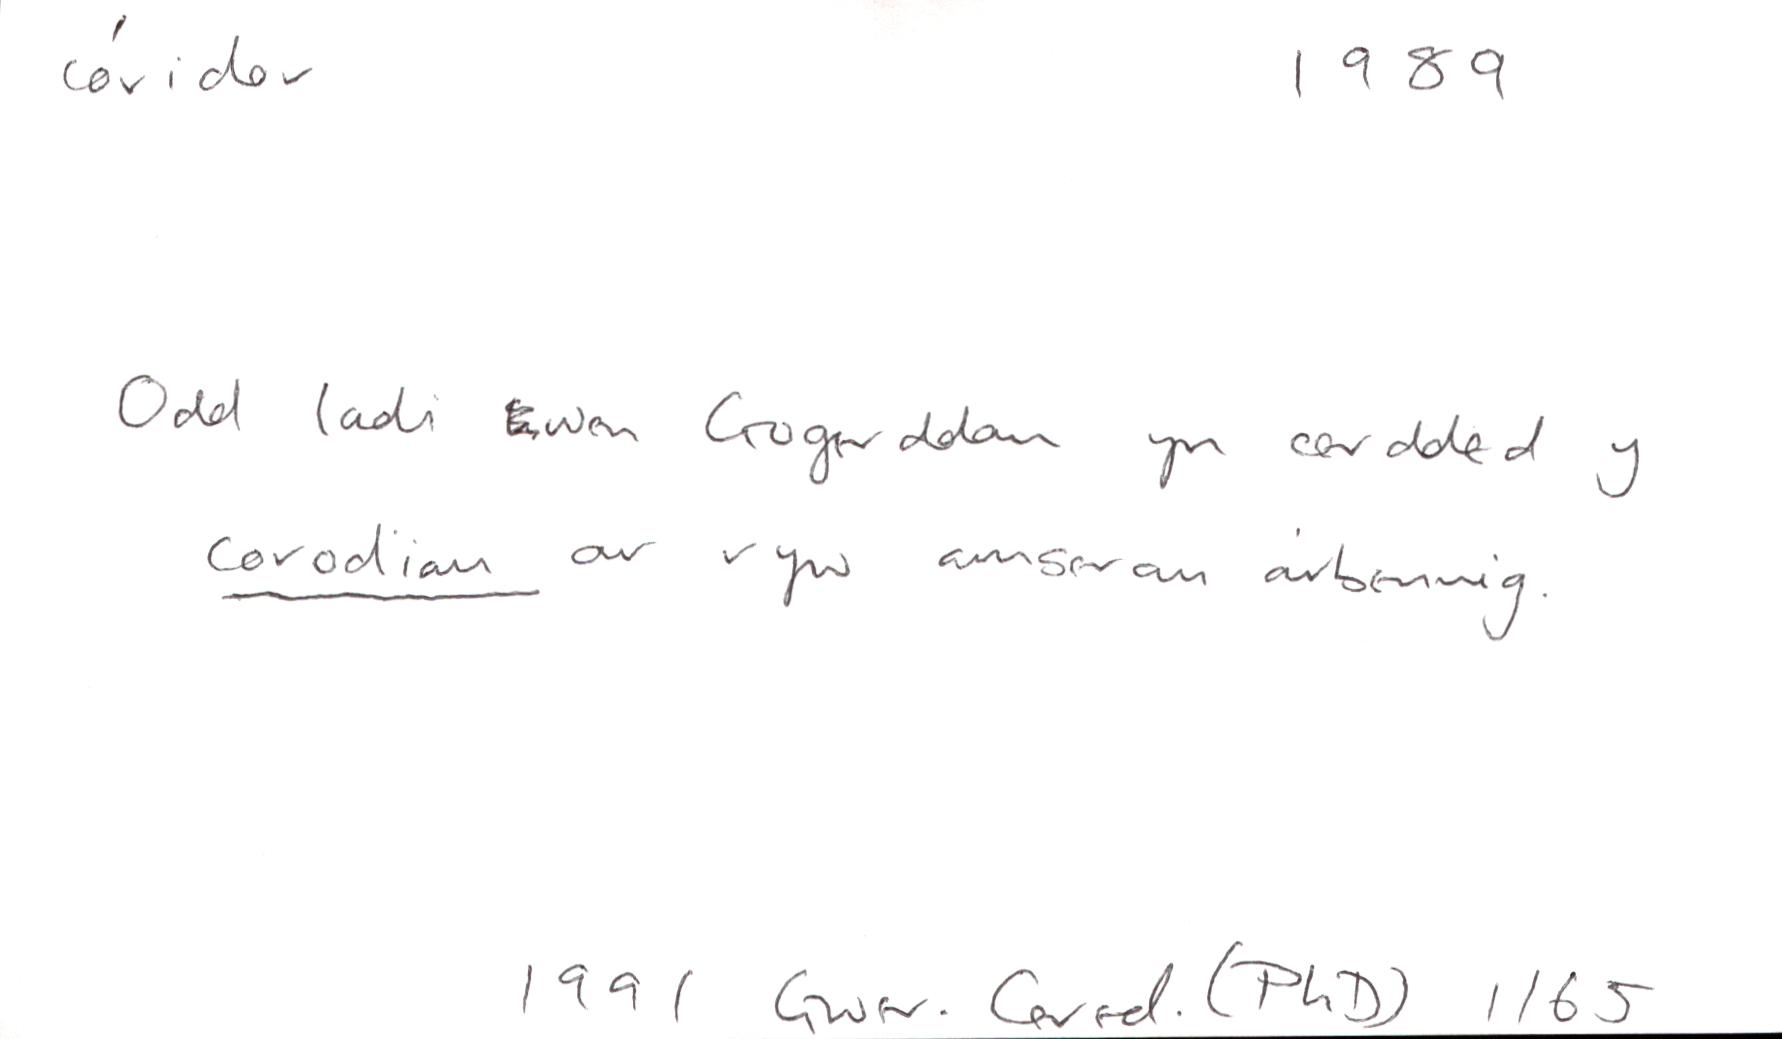 córidor 1989
Odd ladi wen Gogerddan yn cerdded y
corodian ar ryw amseran arbennig.
1991 Gwer. Cered. (PhD) 1/65